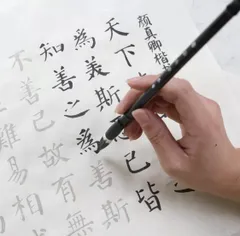 颜真卿楷
天下
為美斯惡已皆
知善之為善斯
不善已故有無
難易相